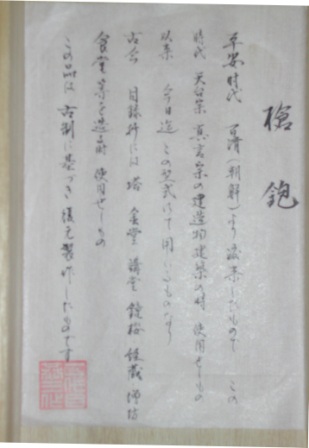 槍鉋
平安時代 百済(朝鮮)より渡来したもので この
時代 天台宗 真言宗の建造物建築の時 使用せしもの
以来 今日迄 この型式にて用いしものなり
古今 目録所には塔 金堂 講堂 鐘楼 経蔵 僧坊
食堂等を造る時 使用せしもの
この品は 古制に基づき復元製作したものです